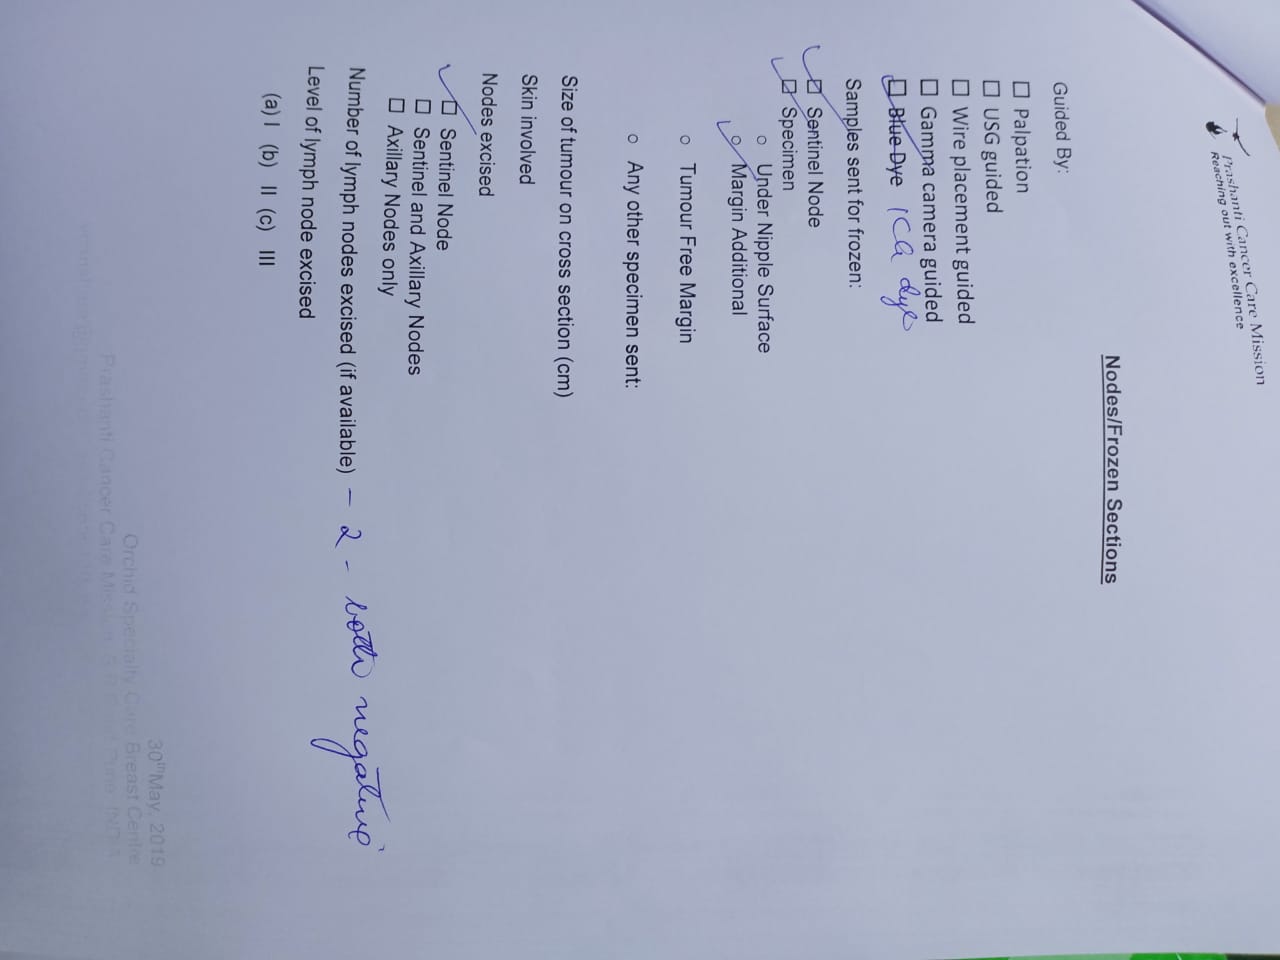 Prashanti Cancer Care Mission
Reaching out with excellence
Nodes/Frozen Sections
Guided By:
☐ Palpation
☐ USG guided
☐ Wire placement guided
☐ Gamma camera guided
☐ Blue Dye ICG dye
Samples sent for frozen:
☐ Sentinel Node
☐ Specimen
○ Under Nipple Surface
○ Margin Additional
○ Tumour Free Margin
○ Any other specimen sent:
Size of tumour on cross section (cm)
Skin involved
Nodes excised
☐ Sentinel Node
☐ Sentinel and Axillary Nodes
☐ Axillary Nodes only
Number of lymph nodes excised (if available) – 2 - both negative
Level of lymph node excised
(a) I (b) II (c) III
30th May, 2019
Orchid Specialty Care Breast Centre
Prashanti Cancer Care Mission